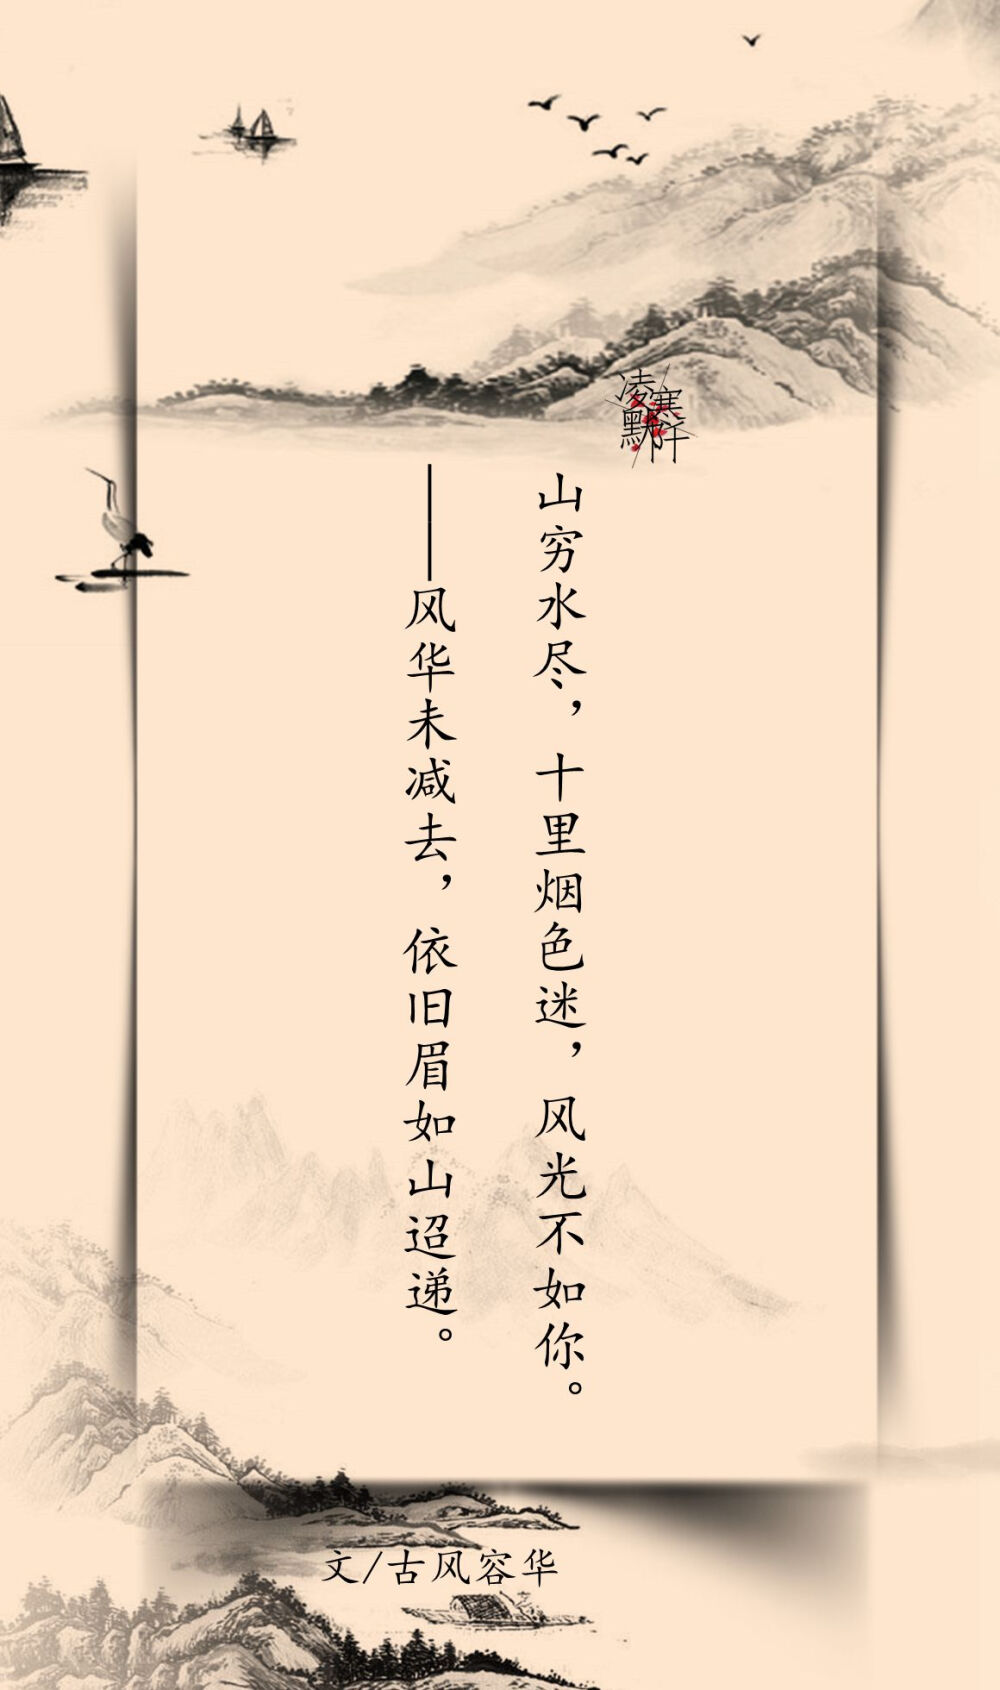 山穷水尽，十里烟色迷，风光不如你。
——风华未减去，依旧眉如山迢递。
文/古风容华